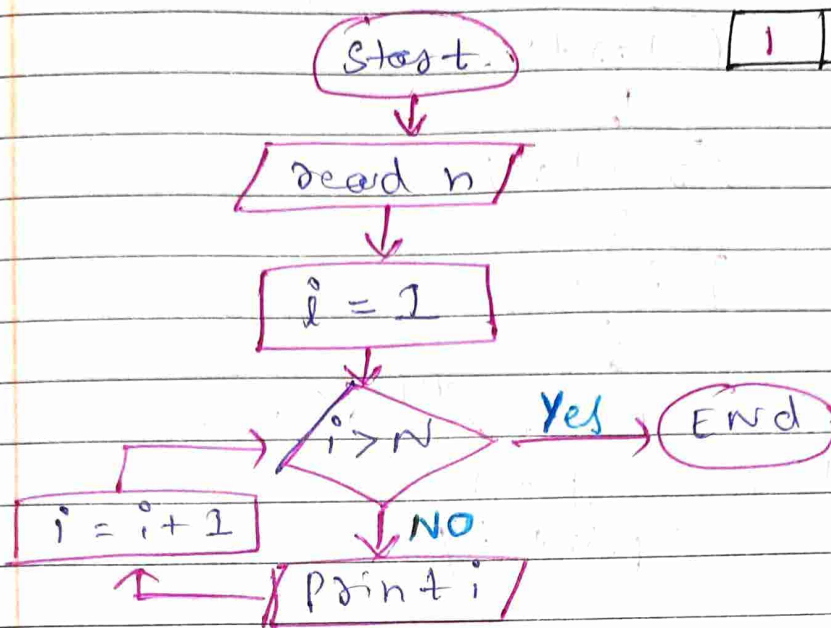 Start.
1
read n
i = 1
i > N
Yes
END
i = i + 1
NO
Print i